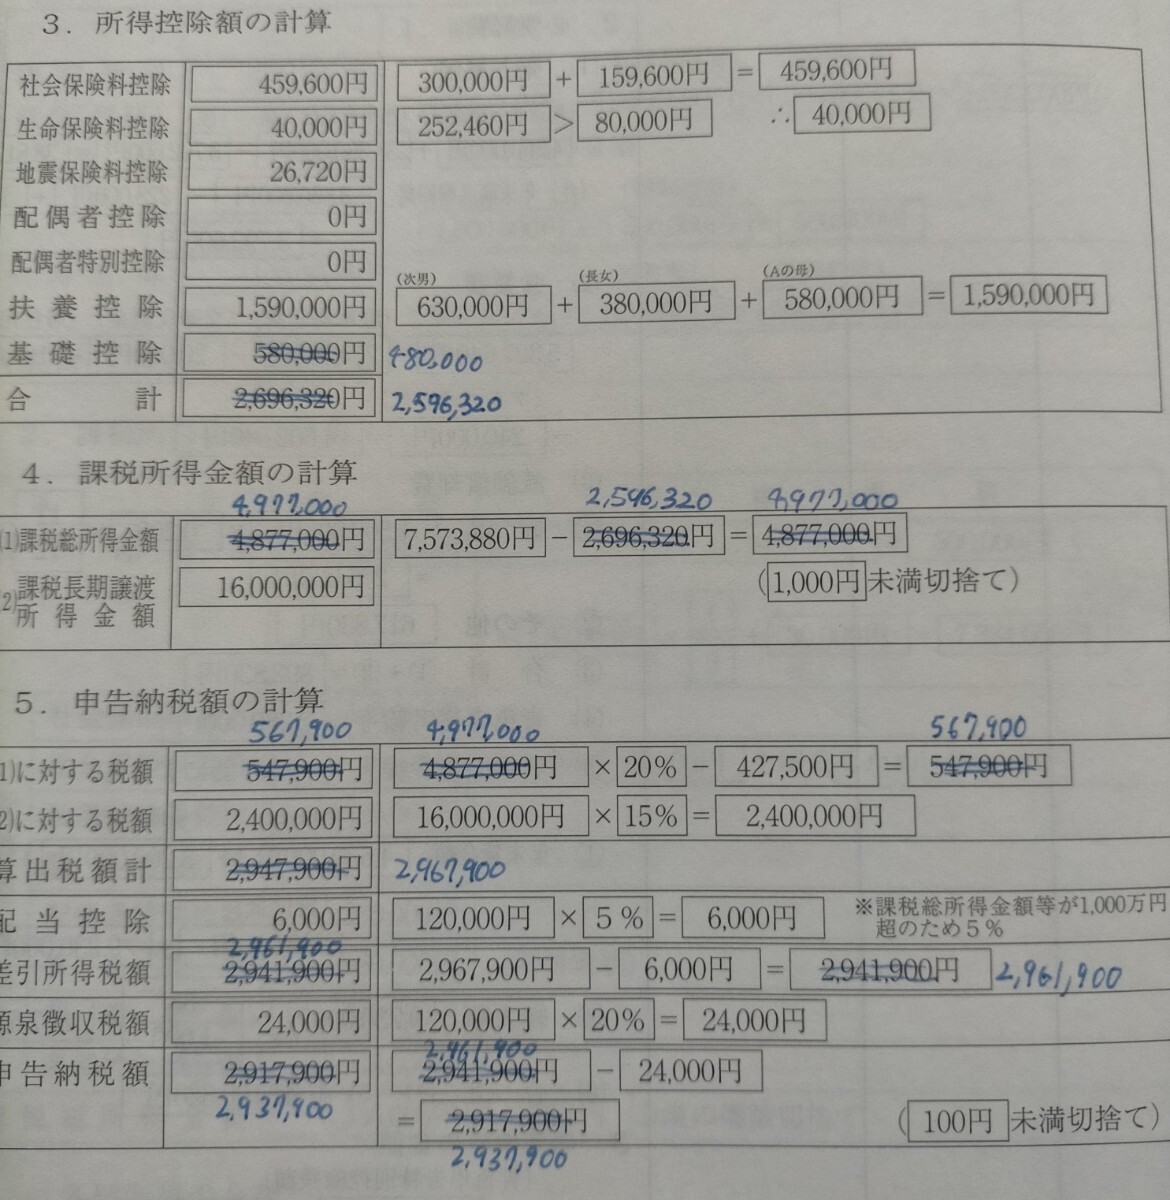 3．所得控除額の計算
社会保険料控除 459,600円 300,000円 + 159,600円 = 459,600円
生命保険料控除 40,000円 252,460円 > 80,000円 ∴ 40,000円
地震保険料控除 26,720円
配偶者控除 0円
配偶者特別控除 0円
(次男) (長女) (Aの母)
扶養控除 1,590,000円 630,000円 + 380,000円 + 580,000円 = 1,590,000円
基礎控除 580,000円 480,000
合計 2,696,320円 2,596,320
4．課税所得金額の計算
4,977,000 2,596,320 4,977,000
(1)課税総所得金額 4,877,000円 7,573,880円 − 2,696,320円 = 4,877,000円
(2)課税長期譲渡所得金額 16,000,000円 (1,000円未満切捨て)
5．申告納税額の計算
567,900 4,977,000 567,900
1)に対する税額 547,900円 4,877,000円 × 20% − 427,500円 = 547,900円
2)に対する税額 2,400,000円 16,000,000円 × 15% = 2,400,000円
算出税額計 2,947,900円 2,967,900
配当控除 6,000円 120,000円 × 5% = 6,000円 ※課税総所得金額等が1,000万円
超のため5%
2,961,900
差引所得税額 2,941,900円 2,967,900円 − 6,000円 = 2,941,900円 2,961,900
源泉徴収税額 24,000円 120,000円 × 20% = 24,000円
2,961,900
申告納税額 2,917,900円 2,941,900円 − 24,000円
2,937,900 = 2,917,900円 (100円未満切捨て)
2,937,900